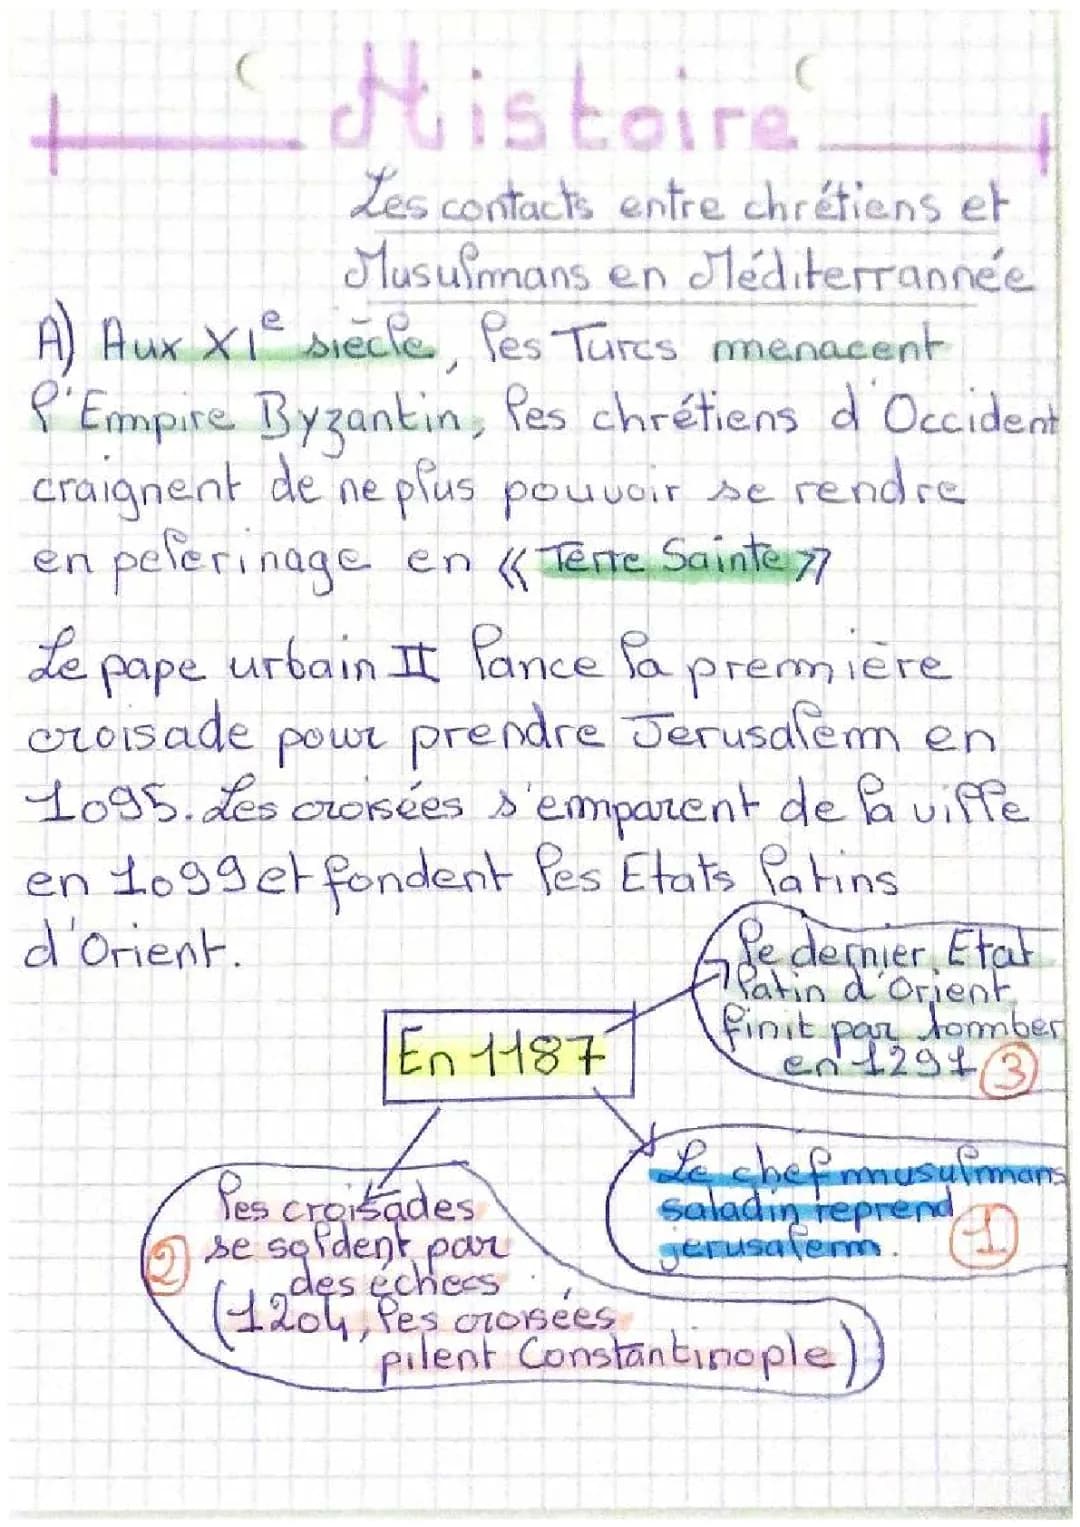 Histoire
Les contacts entre chrétiens et
Musulmans en Méditerrannée
A) Aux XIe siècle, les Turcs menacent
l'Empire Byzantin, les chrétiens d'Occident
craignent de ne plus pouvoir se rendre
en pelerinage en « Terre Sainte »
Le pape urbain II lance la première
croisade pour prendre Jerusalem en
1095. Les croisées s'emparent de la ville
en 1099 et fondent les Etats latins
d'Orient.
le dernier Etat
latin d'Orient
finit par tomber
en 1291 3
En 1187
Le chef musulmans
saladin reprend
jerusalem. 1
les croisades
2 se soldent par
des échecs
(1204, les croisées
pilent Constantinople)